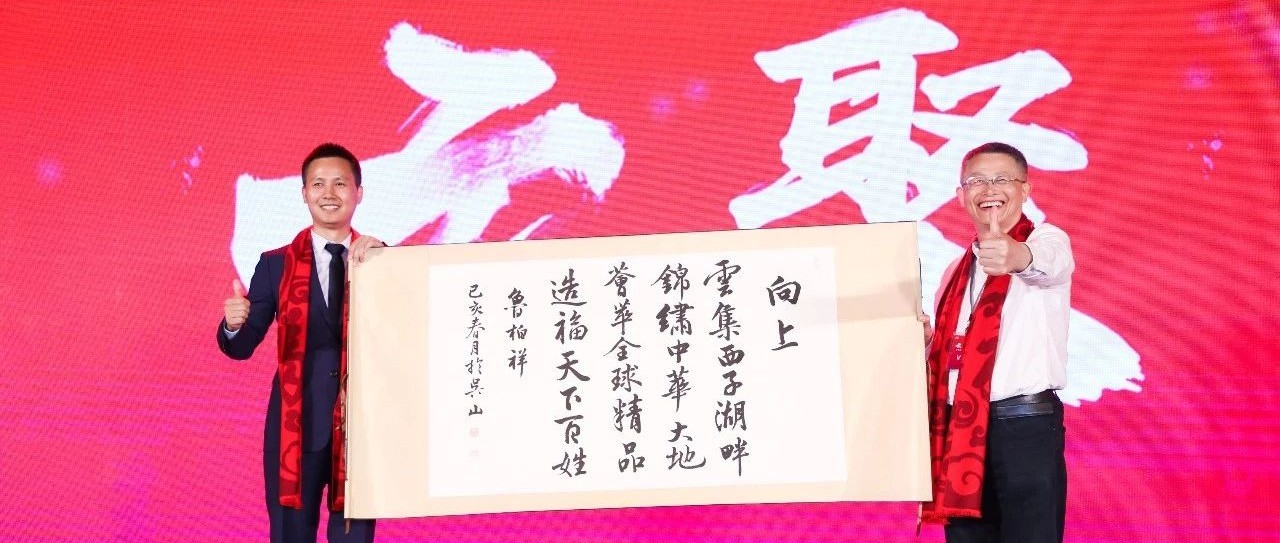 聚
向上
雲集西子湖畔
錦繡中華大地
薈萃全球精品
造福天下百姓
魯柏祥
己亥春月於吳山